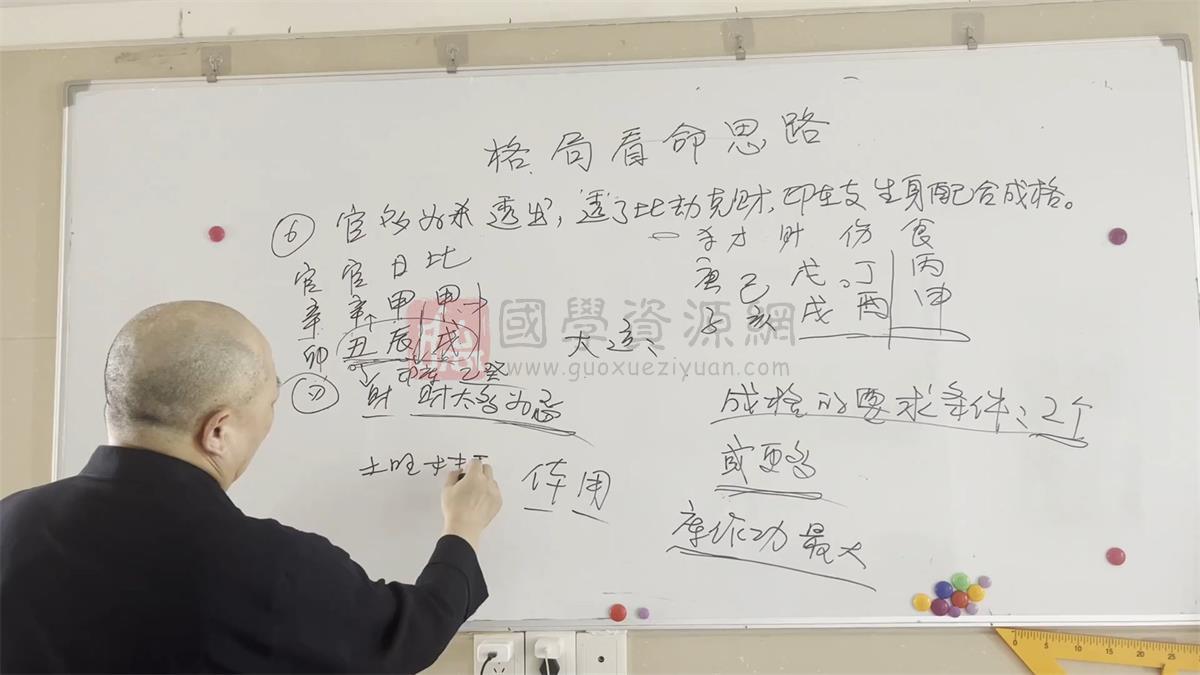 格局看命思路
⑥ 官多为杀透出，透了比劫克财，印在支生身配合成格。
官 官 日 比
辛 辛 甲 甲
卯 丑 辰 戌
杀 才 财 伤 食
庚 己 戊 丁 丙
子 亥 戌 酉 申
大运：
財 財太多为忌
成格的要求条件：2个
或更多
土旺
体用
库作功最大
國學資源網
www.guoxueziyuan.com